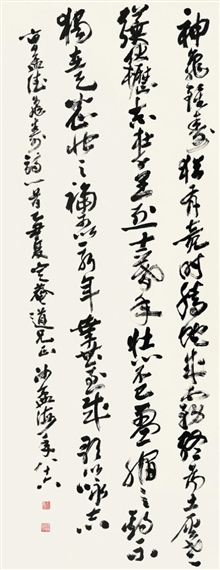 神龜雖壽猶有竟時騰蛇乘霧終為土灰老
驥伏櫪志在千里烈士暮年壯心不已盈縮之期不
獨在天養怡之福可得永年幸甚至哉歌以咏志
曹孟德龜壽詩一首乙丑夏定菴道兄正沙孟海年八十六